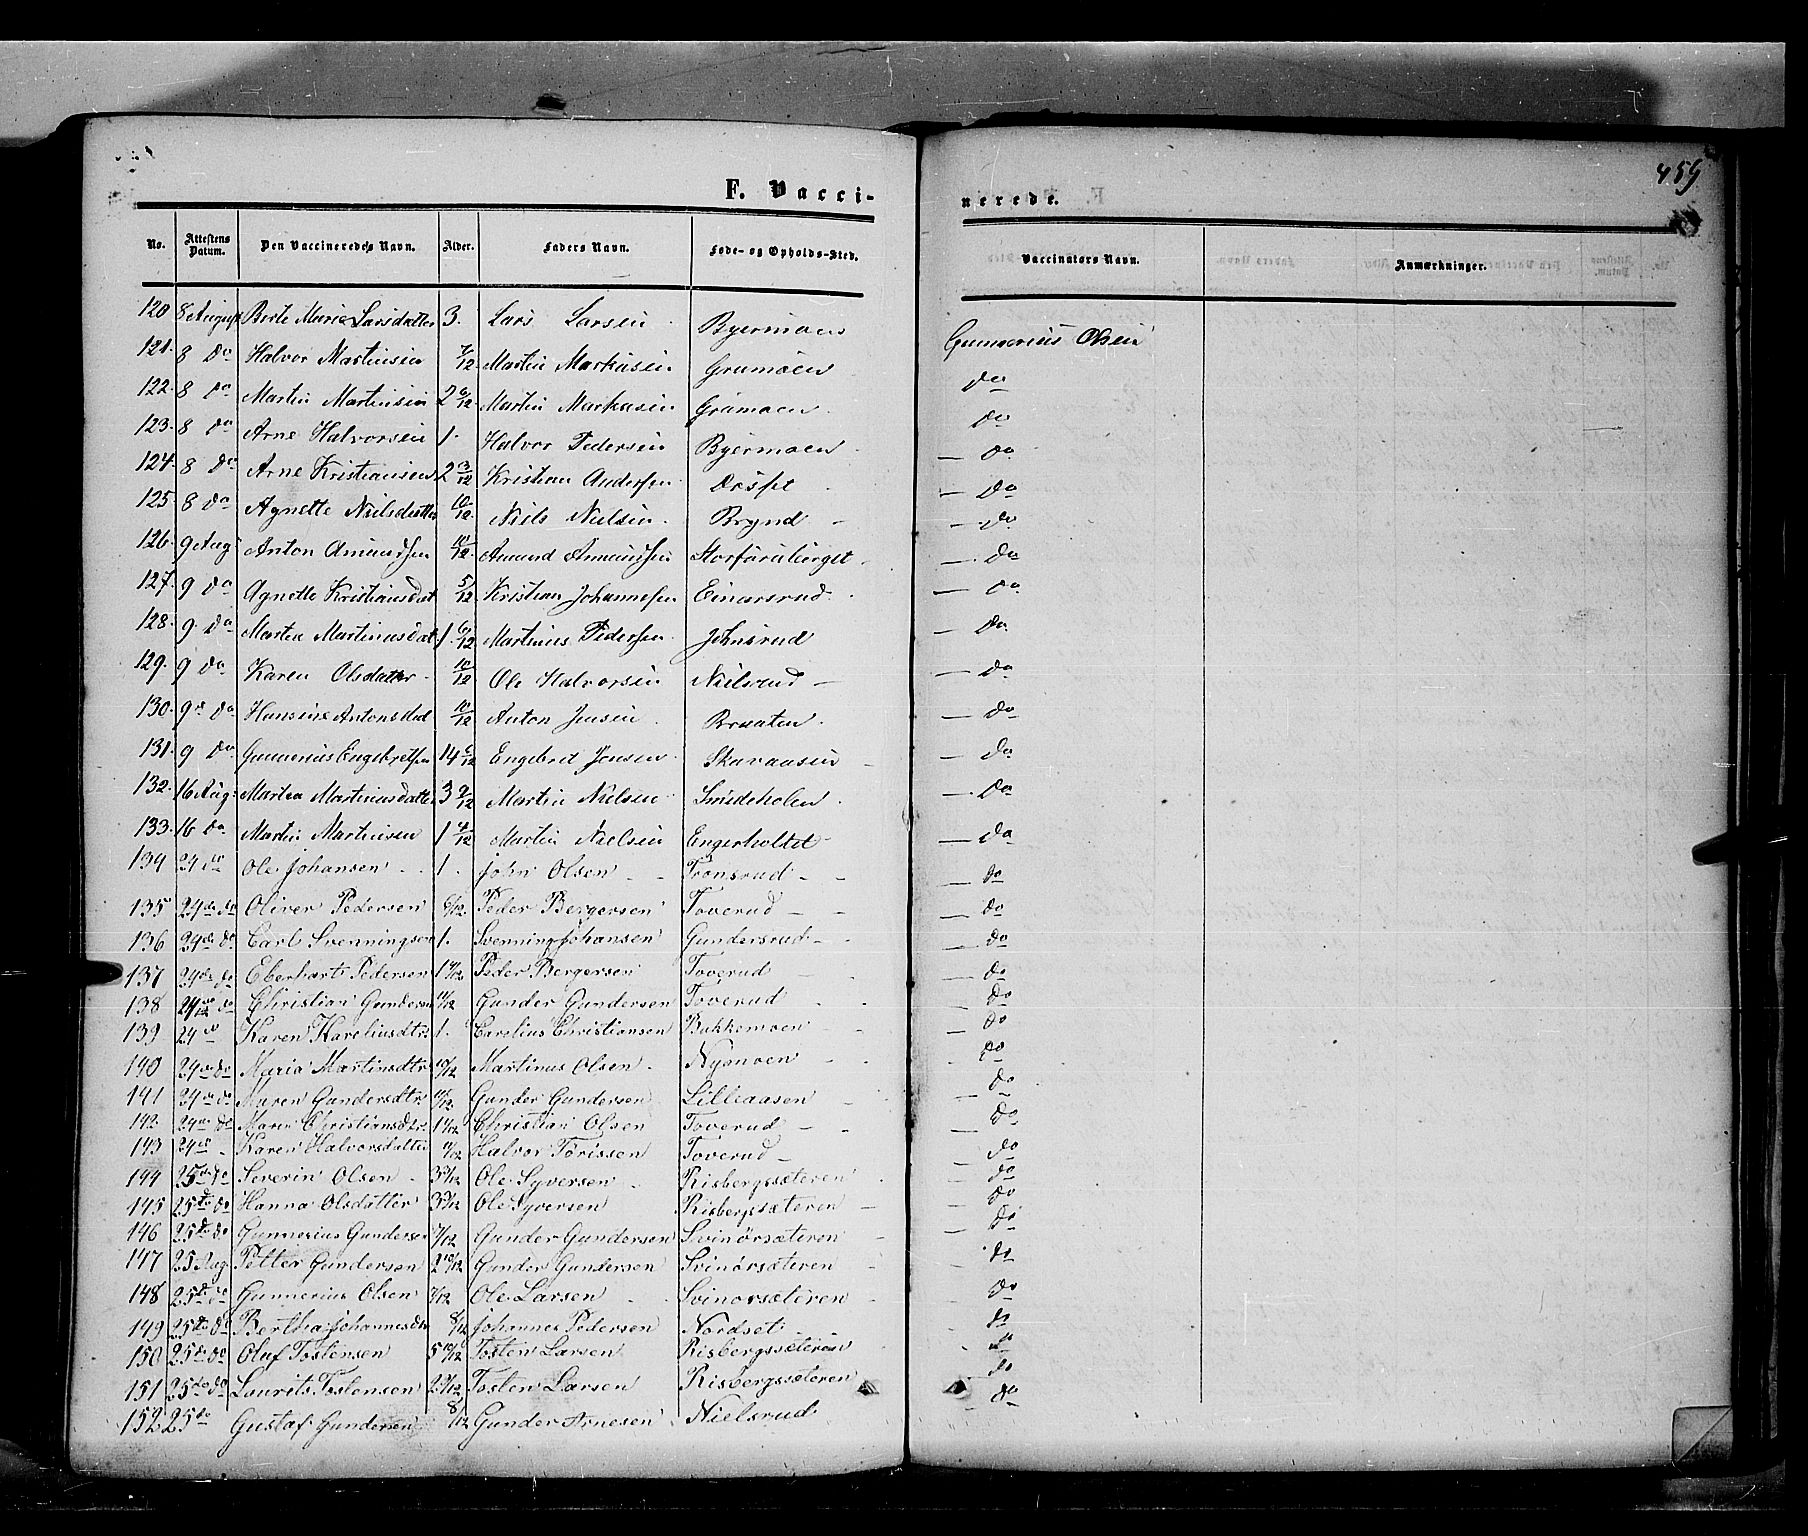 459
F. Vacci-
nerede.
No. Attestens Datum. Den Vaccineredes Navn. Alder. Faders Navn. Føde- og Opholds-Sted. Vaccinators Navn. Anmærkninger.
120 8 August Berte Marie Larsdatter 3. Lars Larsen Byermoen Gunnerius Olsen
121. 8 do Halvor Martinsen 7/12 Martin Markusen Gramoen do
122. 8 do Martin Martinsen 2 6/12 Martin Markusen Gramoen do
123. 8 do Arne Halvorsen 1. Halvor Pedersen Byermoen do
124. 8 do Arne Kristiansen 2 3/12 Kristian Andersen do
125. 8 do Agnette Nielsdatter 10/12 Niels Nielsen Brynd do
126. 9 Aug Anton Amundsen 10/12 Amund Amundsen Storfuruberget do
127. 9 do Agnette Kristiansdat 5/12 Kristian Johannesen Einarsrud do
128. 9 do Marten Martinusdat 1 6/12 Martinus Pedersen Johnsrud do
129. 9 do Karen Olsdatter 10/12 Ole Halvorsen Nielsrud do
130. 9 do Hansine Antonsdat 10/12 Anton Jensen Braaten do
131. 9 do Gunnerius Engebretsen 14 6/12 Engebret Jonsen Skavaasen do
132. 16 Aug: Marten Martinusdatter 3 9/12 Martin Nielsen Smideholen do
133. 16 do Martin Martinsen 1 4/12 Martin Nielsen Engerholtet do
134 24 do Ole Johansen 1. John Olsen Tronsrud do
135 24de do Oliver Pedersen 6/12 Peder Bergersen Toverud do
136 24de do Carl Svenningsen 1. Svenning Johansen Gundersrud do
137 24de do Eberhart Pedersen 1 Peder Bergersen Toverud do
138 24 do Christian Gundersen 11/12 Gunder Gundersen Toverud do
139 24 do Karen Kareliusdtr 1. Carelius Christiansen Bakkemoen do
140 24 do Maria Martinsdtr 10/12 Martinus Olsen Nysmoen do
141 24 do Maren Gundersdtr 11/12 Gunder Gundersen Lilleaasen do
142. 24 do Maren Christiansdtr. 1 Christian Olsen Toverud do
143 24 do Karen Halvorsdatter 11/12 Halvor Torissen Toverud do
144 25 do Severin Olsen 3 Ole Syversen Risbergssæteren do
145 25 do Hanna Olsdatter 3 Ole Syversen Risbergssæteren do
146 25 do Gunnerius Gundersen 7/12 Gunder Gundersen Svinørsæteren do
147 25 Aug Petter Gundersen 2 10/12 Gunder Gundersen Svinørsæteren do
148 25 do Gunnerius Olsen 7/12 Ole Larsen Svinorsæteren do
149 25 do Bertha Johannesdtr 8/12 Johannes Pedersen Nordset do
150 25 do Oluf Tostensen 5 10/12 Tosten Larsen Risbergssæteren do
151 25 do Laurits Tostensen 2 Tosten Larsen Risbergssæteren do
152 25 do Gustaf Gundersen 8/12 Gunder Arnesen Nielsrud do